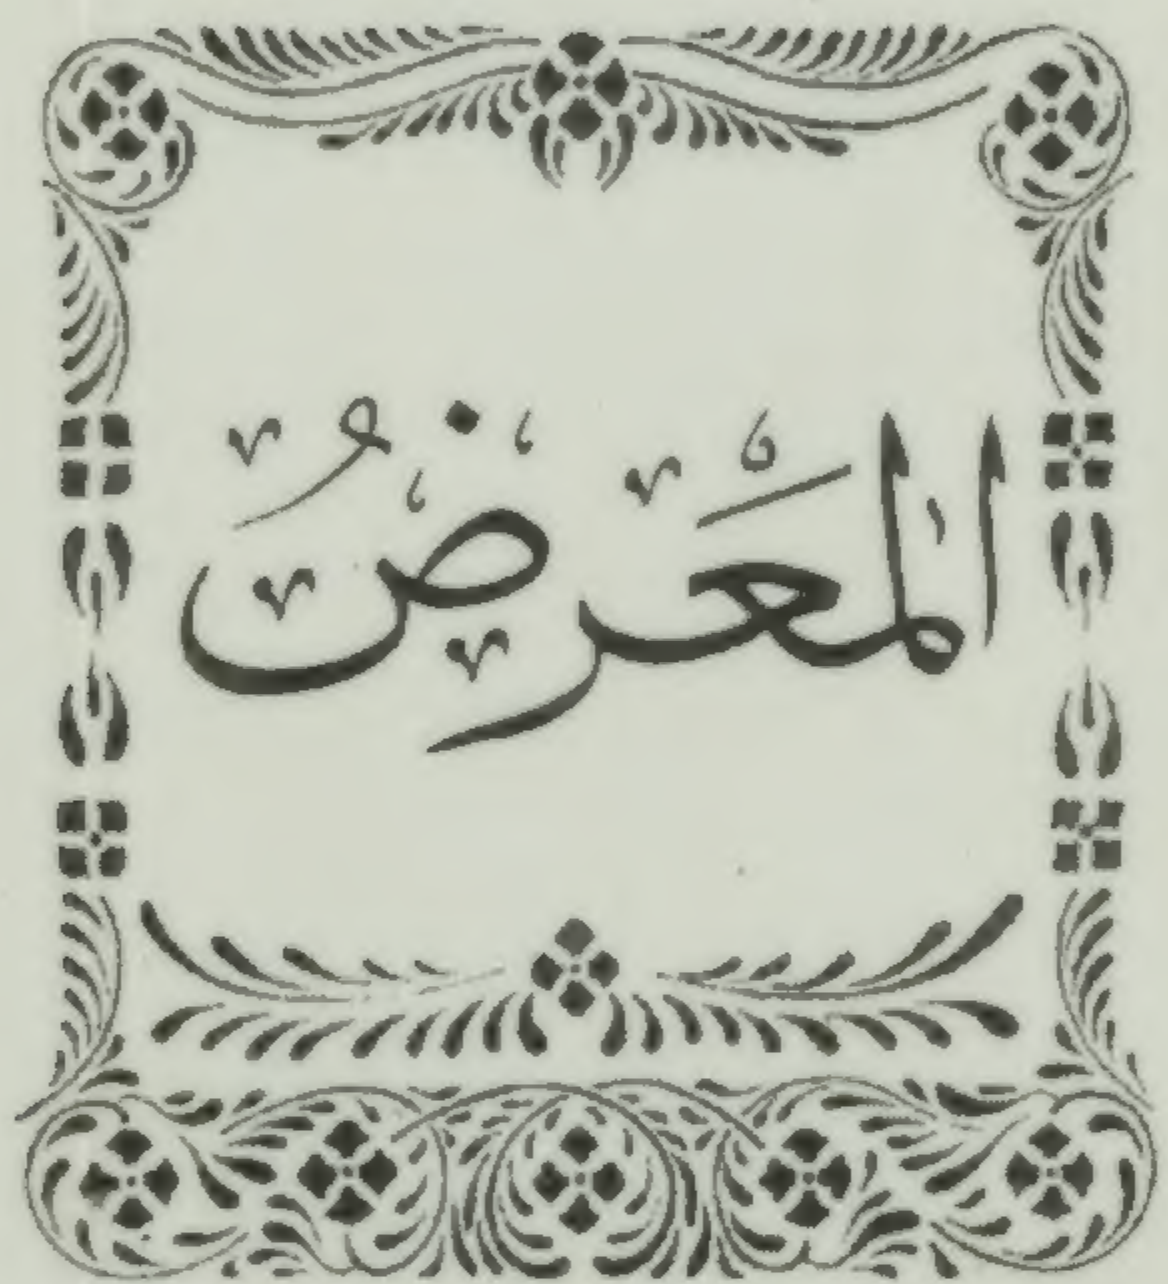 المَعرضُ